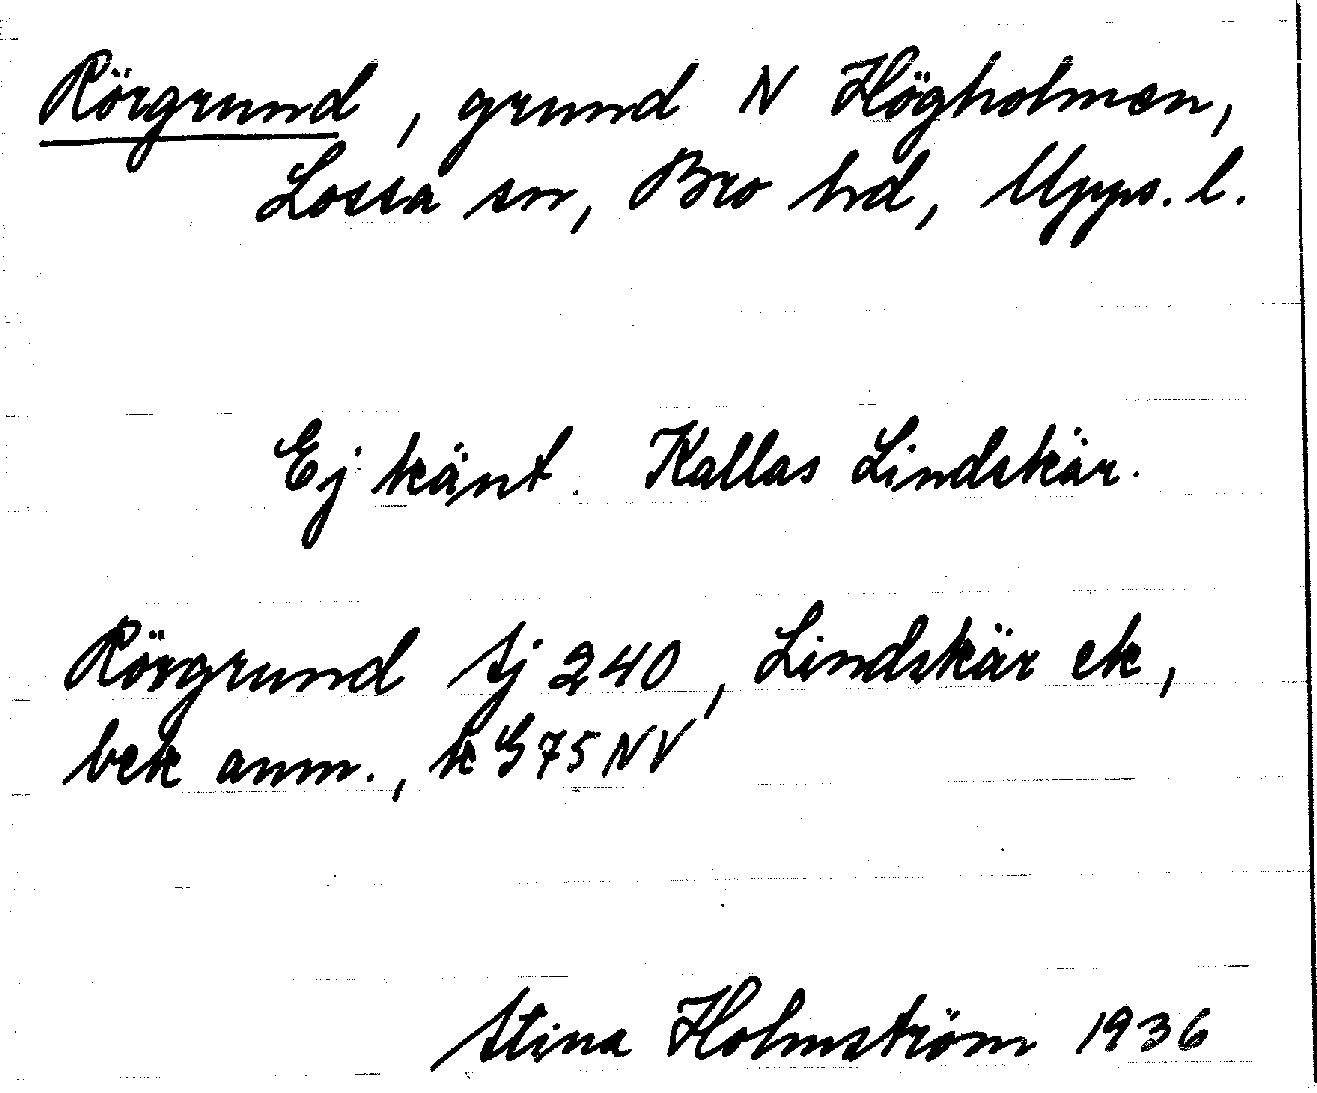 Rörgrund, grund N Högholmen,
Lossa sn, Bro hd, Upps. l.
Ej känt. Kallas Lindskär.
Rörgrund sj 240, Lindskär ek,
bek anm., k G 75 NV
Stina Holmström 1936